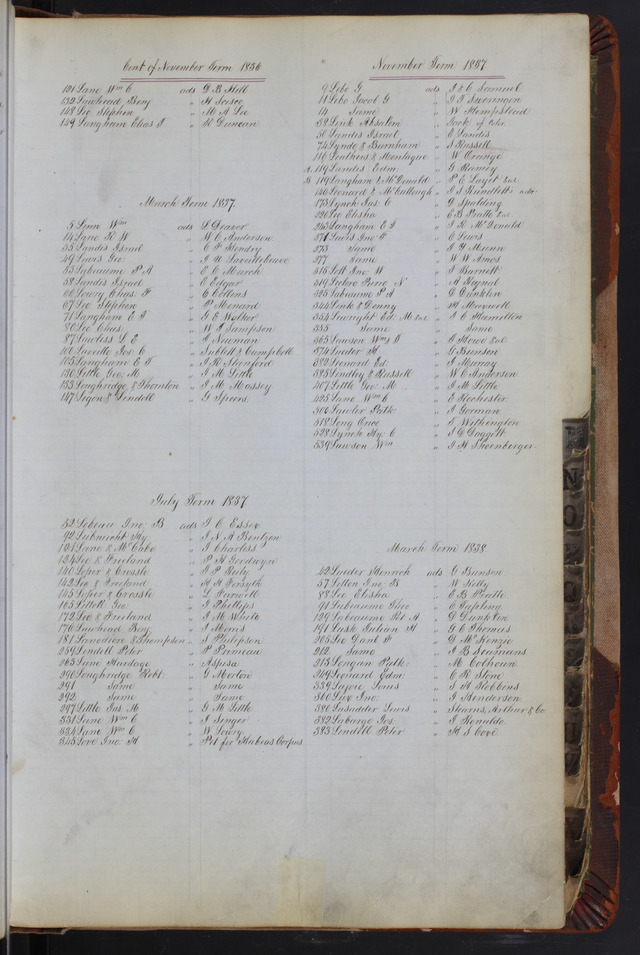 Cont of November Term 1836
121 Lane Wm C ads D B Hill
132 Lawhead Benj " H
148 Lee Stephen " M A Lee
149 Langham Elias T " R Duncan
March Term 1837
5 Linn Wm ads L Deaver
14 Lane R W " W C Anderson
33 Landis Israel " C F Hendry
49 Lewis Geo " J N
53 Labeaume P A " E C March
58 Landis Israel " E Edgar
60 Lowry Chas F " C Collins
67 Lee Stephen " P Menard
71 Langham E T " G E Walker
80 Lee Chas " W T Sampson
87 Lawless L E " J Newman
100 Laveille Jos C " Sublett & Campbell
105 Langham E T " J R Stanford
130 Little Geo M " J M Little
133 Loughridge & Thornton " J M Massey
147 Ligon & Lindell " G Speers
July Term 1837
52 Lebeau Jno B ads J C Essex
92 Lubnicht Hy " J N A Bentzen
101 Lane & McCabe " J Charless
124 Lee & Freeland " P H Goodwyn
140 Loper & Crossle " J P Reily
142 Lee & Freeland " H H Forsyth
145 Loper & Crossle " L Farwell
165 Littell Geo " J Phillips
172 Lee & Freeland " J M White
176 Lawhead Benj " J Magnis
181 Larnodiere & Thompson " S Phillipson
259 Lindell Peter " P Primeau
265 Lane Hardage " Aspisa
290 Loughridge Robt " G Morton
291 Same " Same
292 Same " Same
297 Little Jas M " G M Little
331 Lane Wm C " J Senger
334 Lane Wm C " W Lowry
345 Love Jno H " Pet for Habeas Corpus
November Term 1837
9 Lebo G ads J & C Samuel
11 Lebo Jacob G " J T Swearingen
14 Same " W Hempstead
38 Link Absalom " Jack of Color
50 Landis Israel " E Landis
74 Lynde & Burnham " J Russell
110 Leathers & Montague " W Orange
A 119 Landis Edm " G Raney
B 119 Langham & McDonald " P E Layet Exr
140 Leonard & McCullough " J S Rundlett's adr
173 Lynch Jas C " G Spalding
220 Lee Elisha " E B Pratte Exr
263 Langham E T " J R McDonald
271 Lewis Jno F " E Lewis
273 Same " J Y Munn
277 Same " W W Amos
315 Lott Jno W " J Barnett
319 Leclerc Pierre N " A Reynal
325 Labaume P A " G Dunkton
334 Link & Denny " H Merrowell
354 Livwright Ed M Exr " J C Hamilton
355 Same " Same
365 Lawson Wm T " J Howe Exr
374 Lueder H " G Bunsen
382 Leonard Ed " J Murray
385 Lindley & Russell " W C Anderson
407 Little Geo M " J M Little
425 Lane Wm C " E Rochester
500 Lawler Patk " J Gorman
518 Long Once " E Withington
528 Lynch Hy C " J C Daggett
539 Lawson Wm " J H Shoenberger
March Term 1838
42 Lueder Henrich ads G Bunson
57 Letton Jno B " W Kelly
88 Lee Elisha " E B Pratte
91 Labeaume Theo " C Tapling
129 Labeaume Pet A " G Dunkton
191 Lusk Julian H " G E Thomas
205 Lee Gant F " G McKenzie
212 Same " J B Soumans
213 Longan Patk " M Colhoun
269 Leonard Edm " C R Stone
339 Lajoie Louis " S H Robbins
360 Live Jno " J Henderson
380 Lusadder Lewis " Stearns, Arthur & Co
382 Labarge Jos " J Renaldo
383 Lindell Peter " H S Coxe
N
O